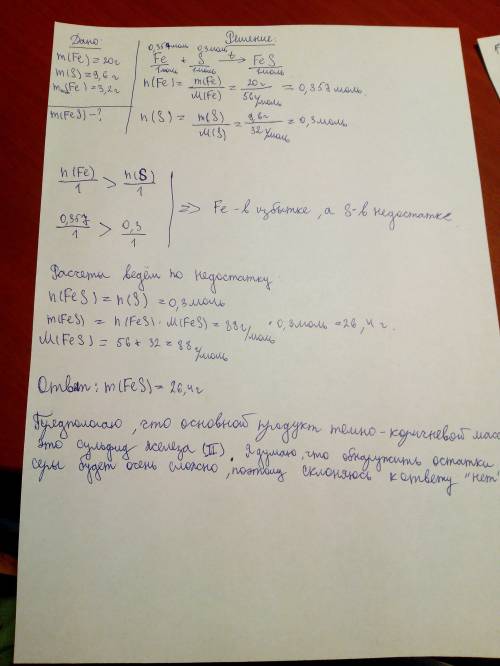 Дано: Решение:
m(Fe) = 20г 0,357моль 0,3моль
m(S) = 9,6г Fe + S t→ FeS
m (Fe) = 3,2г 1моль 1моль 1моль
m(FeS) - ? n(Fe) = m(Fe)/M(Fe) = 20г/56г/моль = 0,357моль.
n(S) = m(S)/M(S) = 9,6г/32г/моль = 0,3моль
n(Fe)/1 > n(S)/1
0,357/1 > 0,3/1 => Fe - в избытке, а S - в недостатке
Расчеты ведём по недостатку:
n(FeS) = n(S) = 0,3моль
m(FeS) = n(FeS) · M(FeS) = 88г/моль · 0,3моль = 26,4г.
M(FeS) = 56 + 32 = 88г/моль
Ответ: m(FeS) = 26,4г
Предполагаю, что основной продукт темно-коричневой масс
это сульфид железа (II). Я думаю, что обнаружить остатки
серы будет очень сложно, поэтому склоняюсь к ответу "нет"